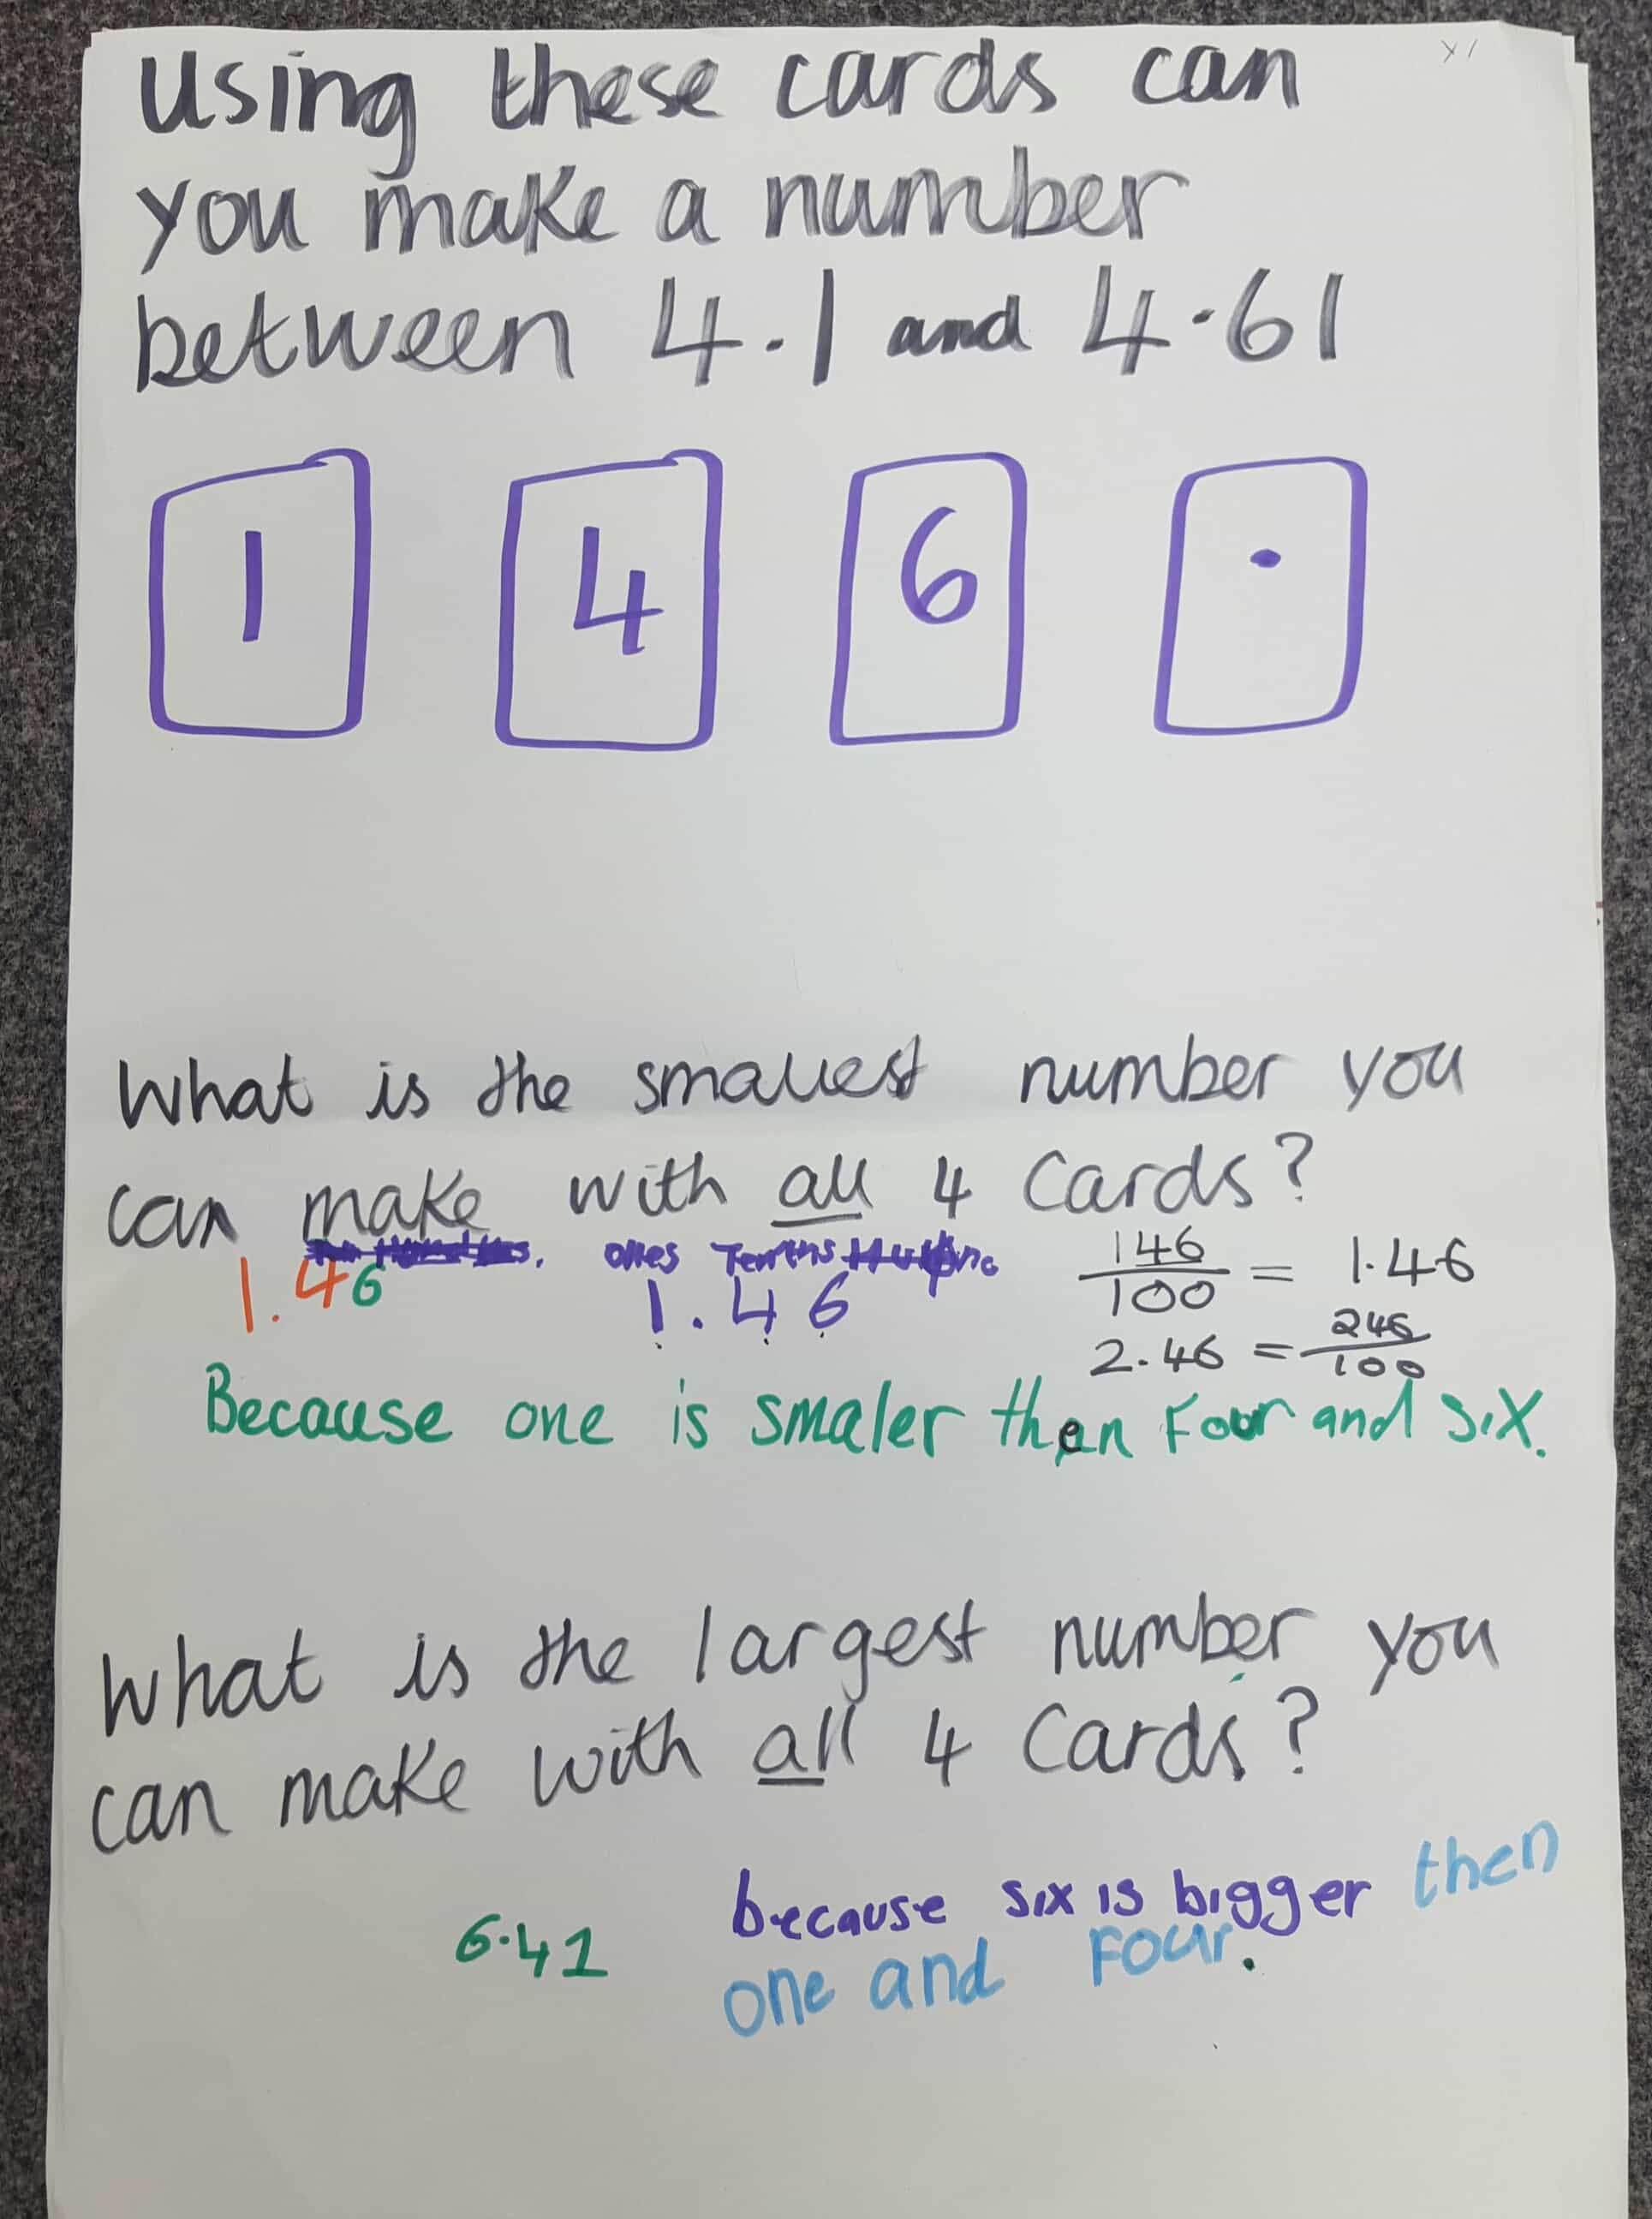 Using these cards can
you make a number
between 4.1 and 4.61
1 4 6 .
What is the smallest number you
can make with all 4 Cards?
ones Tenths
1.46 1.46
146/100 = 1.46
2.46 = 246/100
Because one is smaler then Four and Six.
What is the largest number you
can make with all 4 Cards?
because six is bigger then
6.41 one and Four.